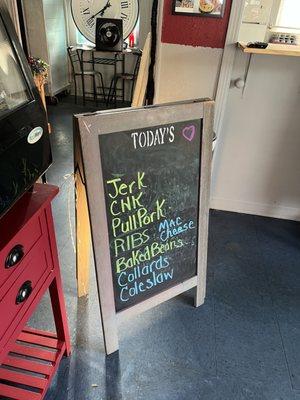 TODAY'S
Jerk
CNK
Pull Pork
RIBS MAC
Cheese
Baked Beans
Collards
Coleslaw